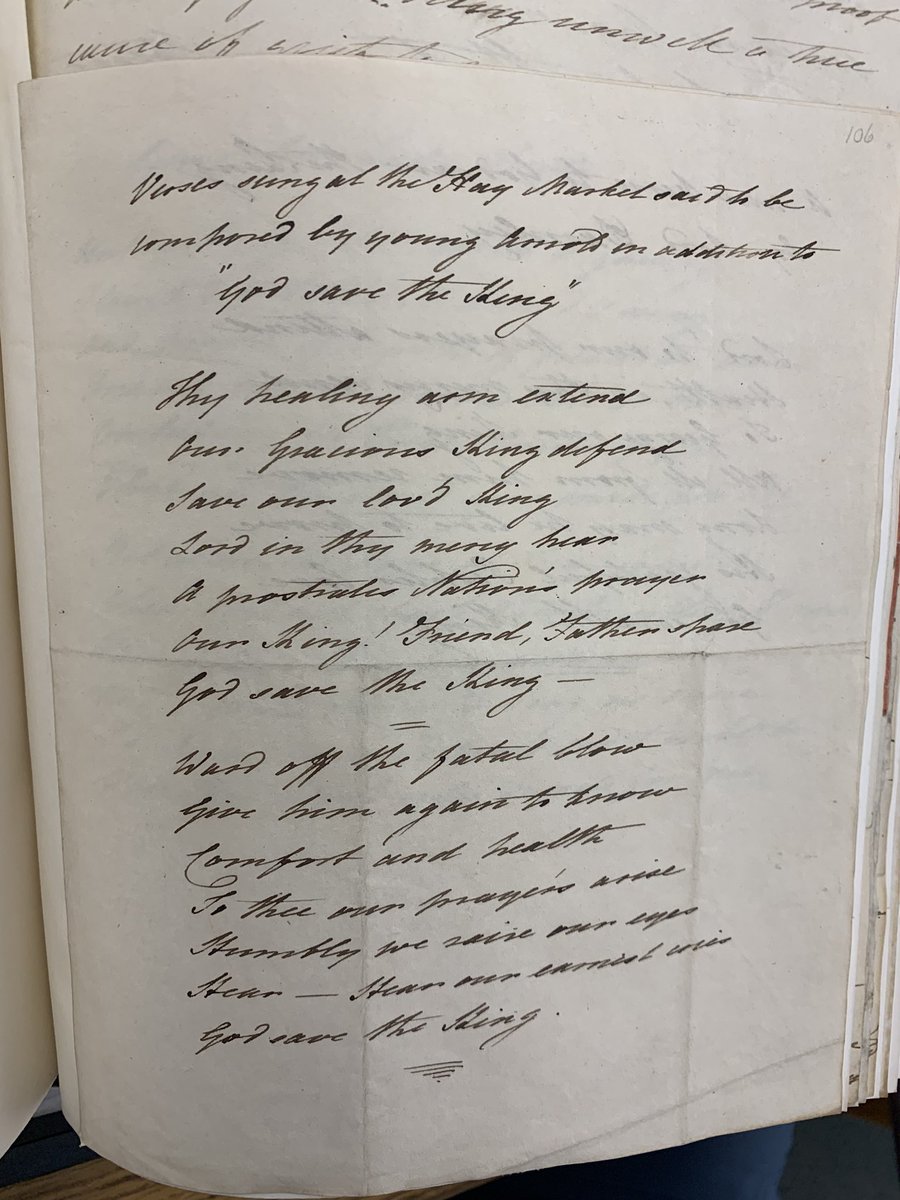 moof
being unwell a true
106
Verses sung at the Hay Market said to be
composed by young Arnold in addition to
"God save the King"
Thy healing arm extend
Our Gracious King defend
Save our lov'd King
Lord in thy mercy hear
A prostrates Nation's prayer
Our King! Friend, Father spare
God save the King —
Ward off the fatal blow
Give him again to know
Comfort and health
To thee our prayers arise
Humbly we raise our eyes
Hear — Hear our earnest cries
God save the King.